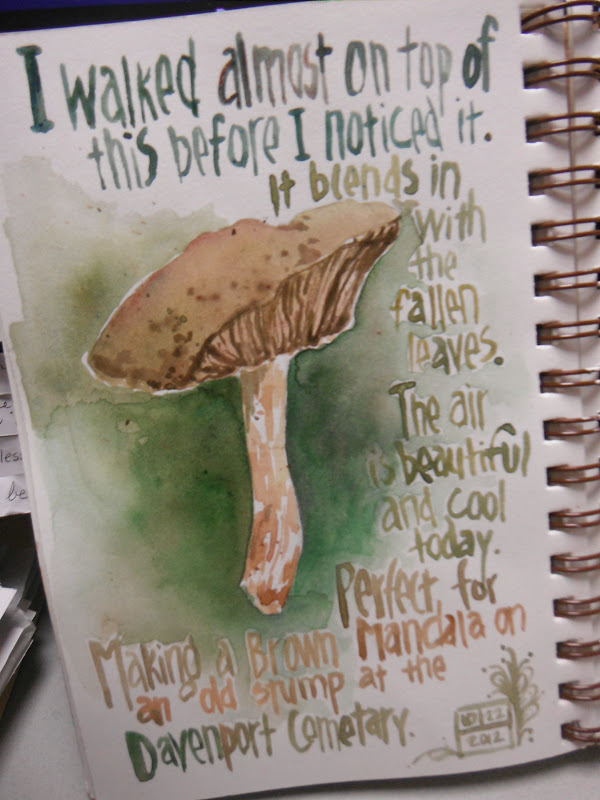 I walked almost on top of
this before I noticed it.
It blends in
with
the
fallen
leaves.
The air
is beautiful
and cool
today.
Perfect for
Making a Brown Mandala on
an old stump at the
Davenport Cemetary.
10/22
2012
less
be